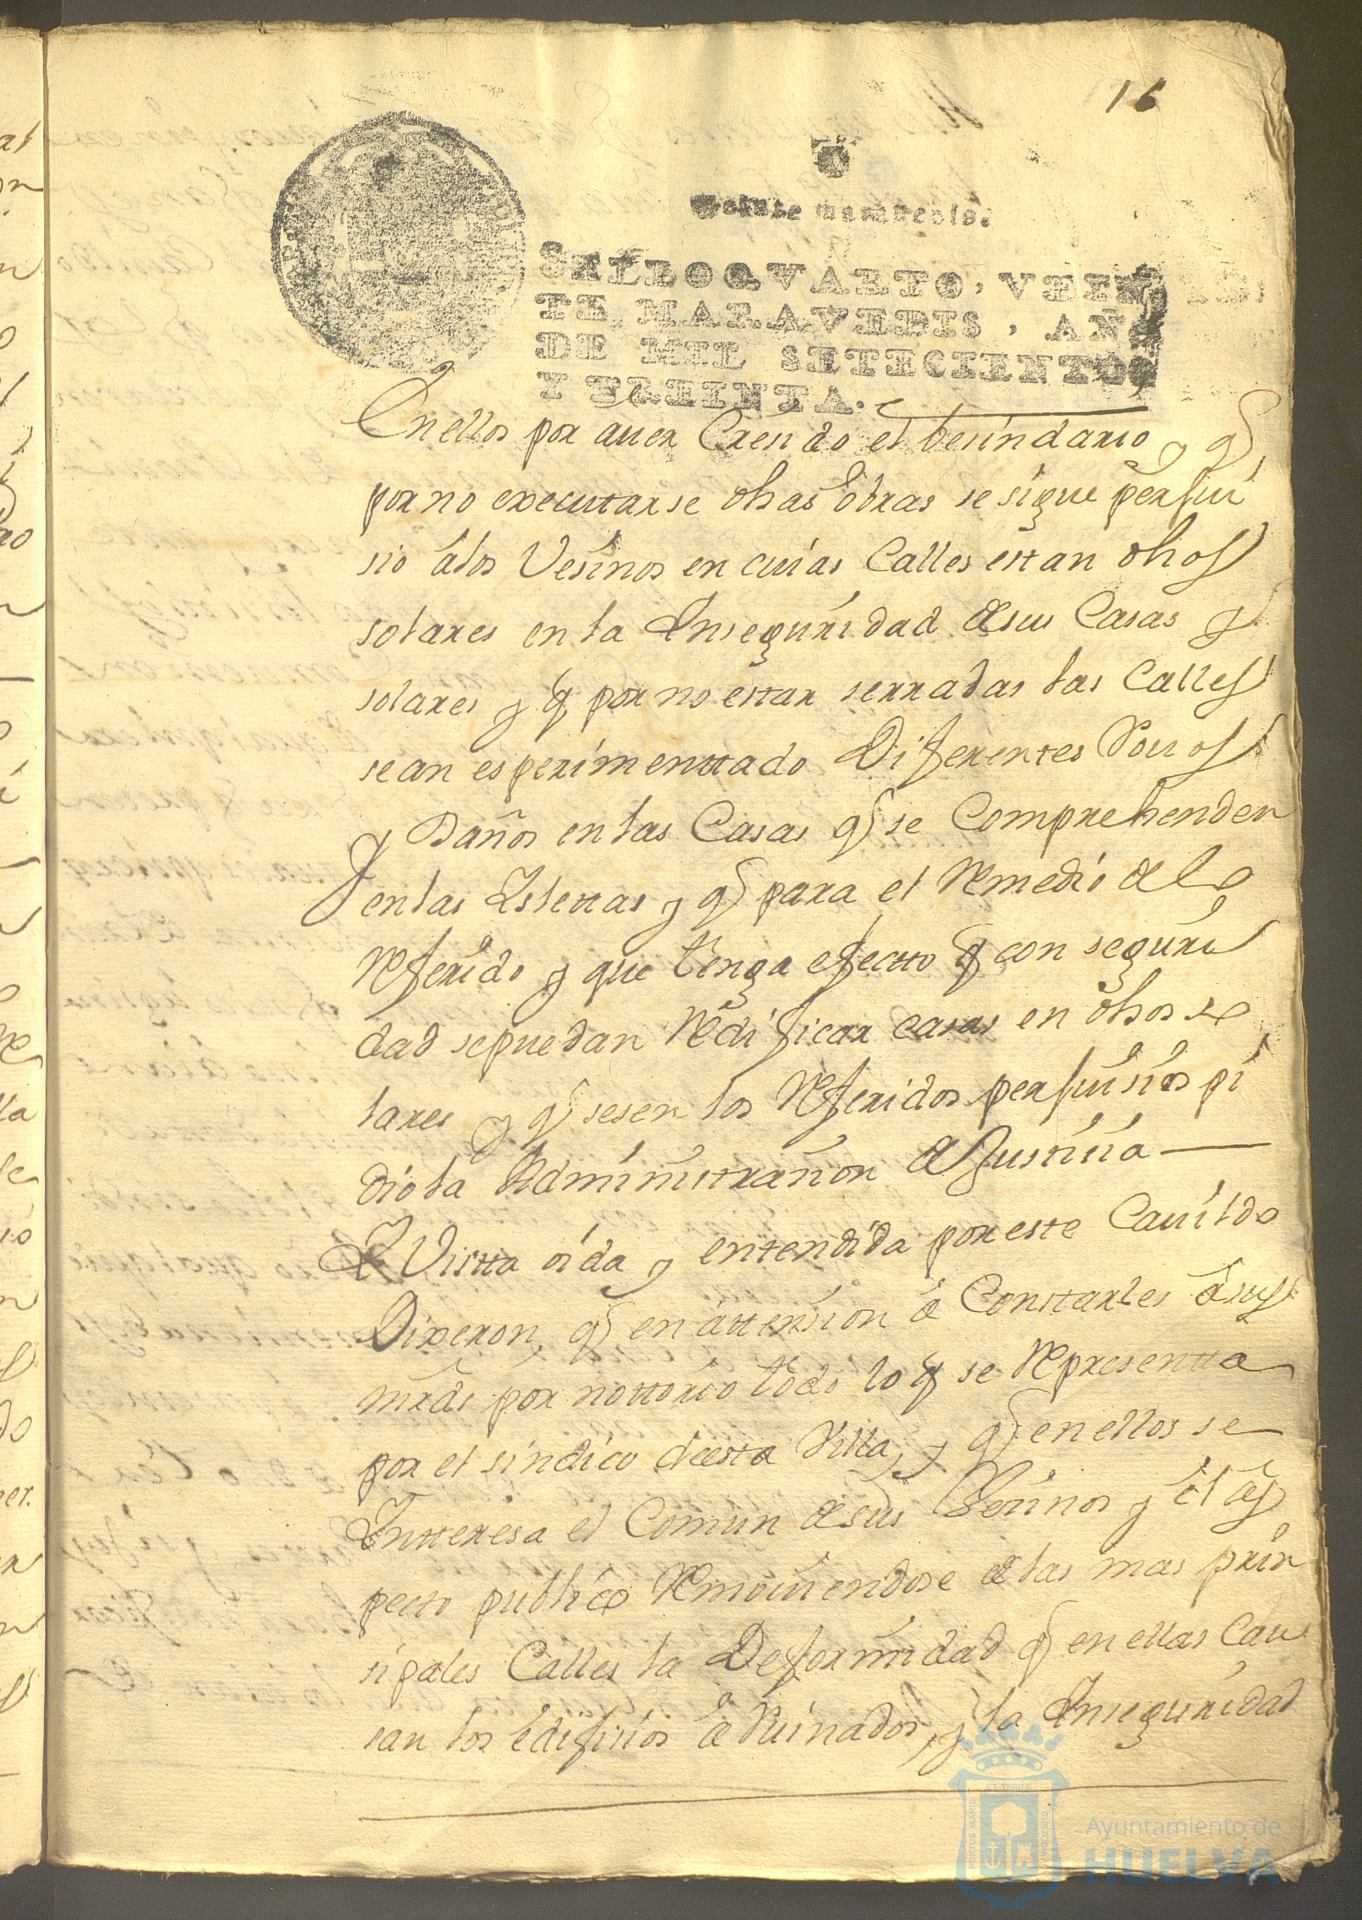 16
Veinte maravedis.
SELLO QVARTO, VEIN
TE MARAVEDIS, AÑO
DE MIL SETECIENTOS
Y TREINTA.
En ellos por auer Cresido el besindario y q
por no executarse dhas obras se sigue perjui
sio álos Vesinos en cuias Calles estan dhos
solares en la Inseguridad de sus Casas y
solares y q por no estar serradas las Calles
sean esperimenttado Diferentes Rouos
y Daños en las Casas q se Comprehenden
en las Isletas y q para el Remedio de lo
Referido y que tenga efectto y con seguri
dad sepuedan Redificar casas en dhos so
lares y q sesen los Referidos perjuisios pi
dio la Administrasion de Justisia
Y Vistta oida y entendida por este Cauildo
Dixeron, q en attension á Constarles á sus
mrds por nottorio todo lo q se Representta
por el sindico deesta Villa, y q en ellos se
Intteresa el Comun de sus Vesinos y el as
pecto publico Remouiendose de las mas prin
sipales Calles la Deformidad q en ellas Cau
san los edifisios aRuinados, y la Inseguridad
Ayuntamiento de
HUELVA